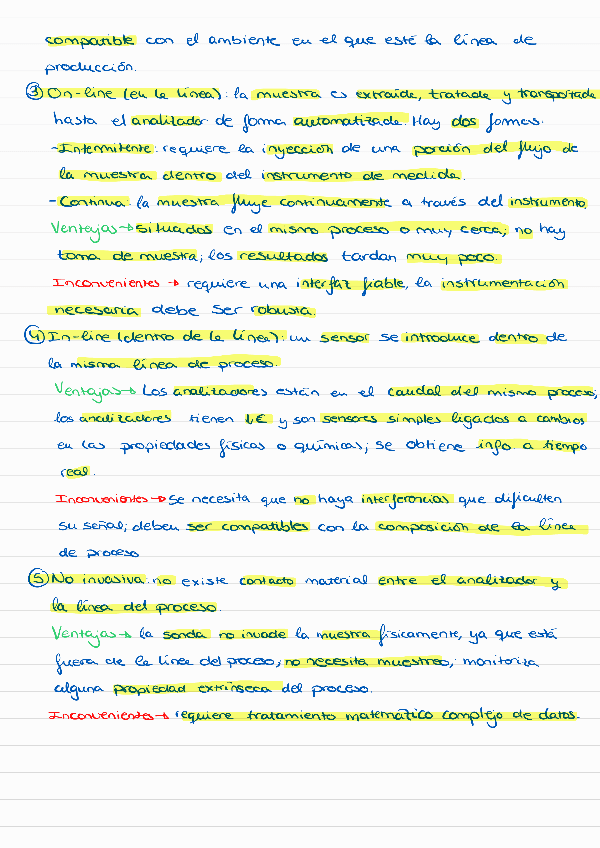 compatible con el ambiente en el que esté la línea de
producción.
③ On-line (en la línea): la muestra es extraída, tratada y transportada
hasta el analizador de forma automatizada. Hay dos formas.
-Intermitente: requiere la inyección de una porción del flujo de
la muestra dentro del instrumento de medida.
-Continua: la muestra fluye continuamente a través del instrumento.
Ventajas→ situados en el mismo proceso o muy cerca; no hay
toma de muestra; los resultados tardan muy poco.
Inconvenientes → requiere una interfaz fiable, la instrumentación
necesaria debe ser robusta.
④ In-line (dentro de la línea): un sensor se introduce dentro de
la misma línea de proceso.
Ventajas→ Los analizadores están en el caudal del mismo proceso;
los analizadores tienen ↓€ y son sensores simples ligados a cambios
en las propiedades físicas o químicas; se obtiene info. a tiempo
real.
Inconvenientes→ se necesita que no haya interferencias que dificulten
su señal; deben ser compatibles con la composición de la línea
de proceso
⑤ No invasiva: no existe contacto material entre el analizador y
la línea del proceso.
Ventajas→ la sonda no invade la muestra físicamente, ya que está
fuera de la línea del poceso; no necesita muestreo; monitoriza
alguna propiedad extrínseca del proceso.
Inconvenientes→ requiere tratamiento matemático complejo de datos.